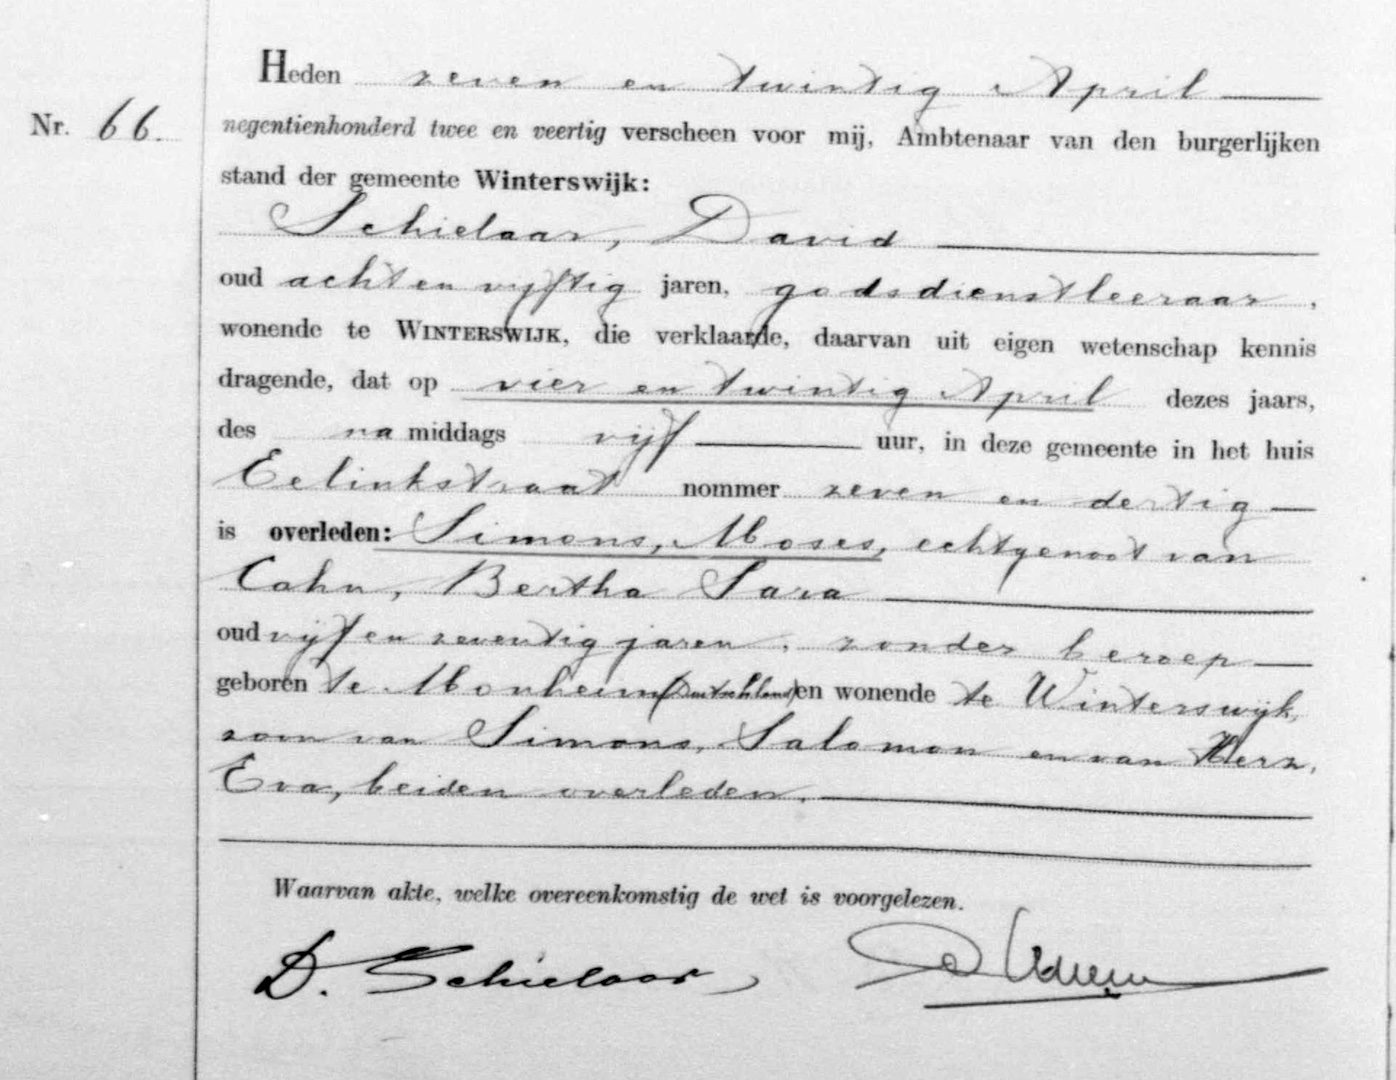 Heden zeven en twintig April
Nr. 66.
negentienhonderd twee en veertig verscheen voor mij, Ambtenaar van den burgerlijken
stand der gemeente Winterswijk:
Schielaar, David
oud acht en vijftig jaren, godsdienstleeraar,
wonende te WINTERSWIJK, die verklaarde, daarvan uit eigen wetenschap kennis
dragende, dat op vier en twintig April dezes jaars,
des na middags vijf uur, in deze gemeente in het huis
Eelinkstraat nommer zeven en dertig
is overleden: Simons, Moses, echtgenoot van
Cahn, Bertha Sara
oud vijf en zeventig jaren, zonder beroep
geboren te Monheim (Duitschland) en wonende te Winterswijk,
zoon van Simons, Salomon en van Herz,
Eva, beiden overleden.
Waarvan akte, welke overeenkomstig de wet is voorgelezen.
D. Schielaar